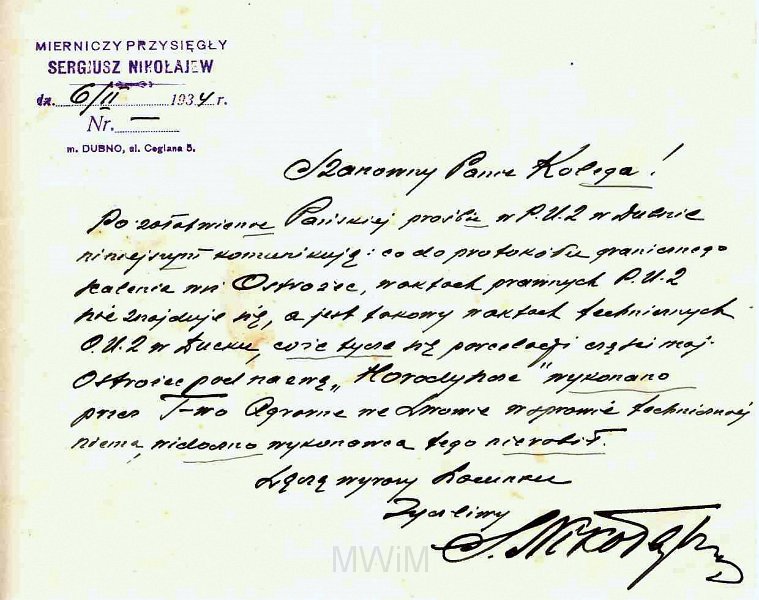 MIERNICZY PRZYSIĘGŁY
SERGJUSZ NIKOŁAJEW
dz. 6/II 1934 r.
Nr. —
m. DUBNO, ul. Ceglana 5.
Szanowny Panie Kolega!
Po załatwieniu Pańskiej prośbie w P.U.Z w Dubnie
niniejszym komunikuję: co do protokółu granicznego
scalenia wsi Ostrożec, w aktach prawnych P.U.Z
nie znajduje się, a jest takowy w aktach technicznych
O.U.Z w Łucku, co się tycze się parcelacji części maj.
Ostrożec pod nazwą „Horodyszcze" wykonano
przez T-wo Agrarne we Lwowie w sprawie technicznej
niema, widoczno wykonawca tego nierobił.
Łączę wyrazy szacunku
Życzliwy
S. Nikołajew
MWiM